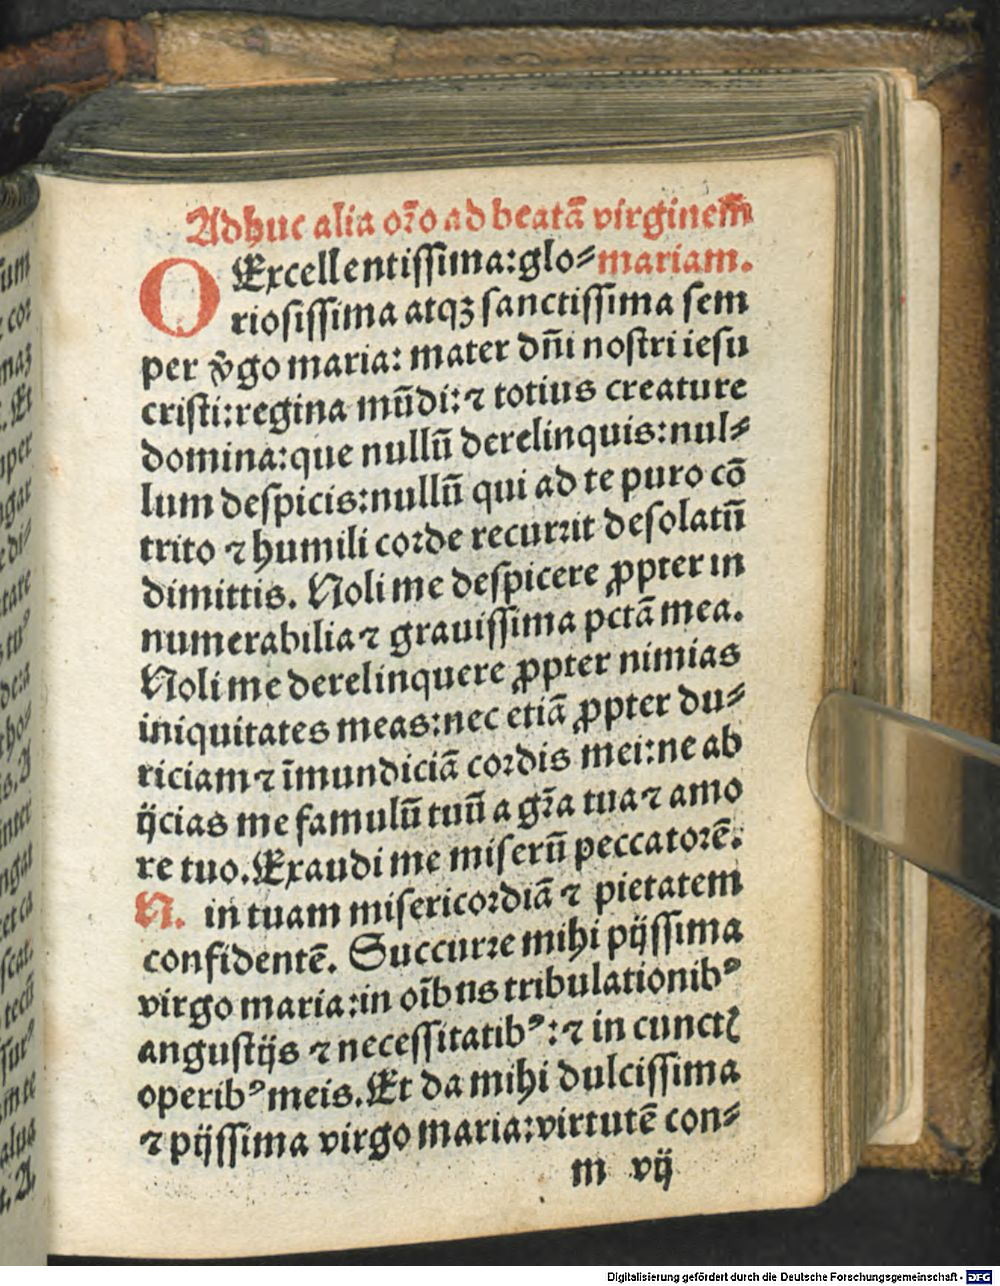 Adhuc alia oro ad beatā virginem
O Excellentissima:glo⸗mariam.
riosissima atqꝫ sanctissima sem
per v̄go maria: mater dn̄i nostri iesu
cristi:regina mūdi:⁊ totius creature
domina:que nullū derelinquis:nul⸗
lum despicis:nullū qui ad te puro cō
trito ⁊ humili corde recurrit desolatū
dimittis. Noli me despicere ꝓpter in
numerabilia ⁊ grauissima pctā mea.
Noli me derelinquere ꝓpter nimias
iniquitates meas:nec etiā ꝓpter du⸗
riciam ⁊ īmundiciā cordis mei:ne ab
ijcias me famulū tuū a gr̄a tua ⁊ amo
re tuo. Exaudi me miserū peccatorē.
N. in tuam misericordiā ⁊ pietatem
confidentē. Succurre mihi pijssima
virgo maria:in oībus tribulationibꝰ
angustijs ⁊ necessitatibꝰ:⁊ in cunctꝭ
operibꝰ meis. Et da mihi dulcissima
⁊ pijssima virgo maria:virtutē con⸗
m vij
Digitalisierung gefördert durch die Deutsche Forschungsgemeinschaft - DFG